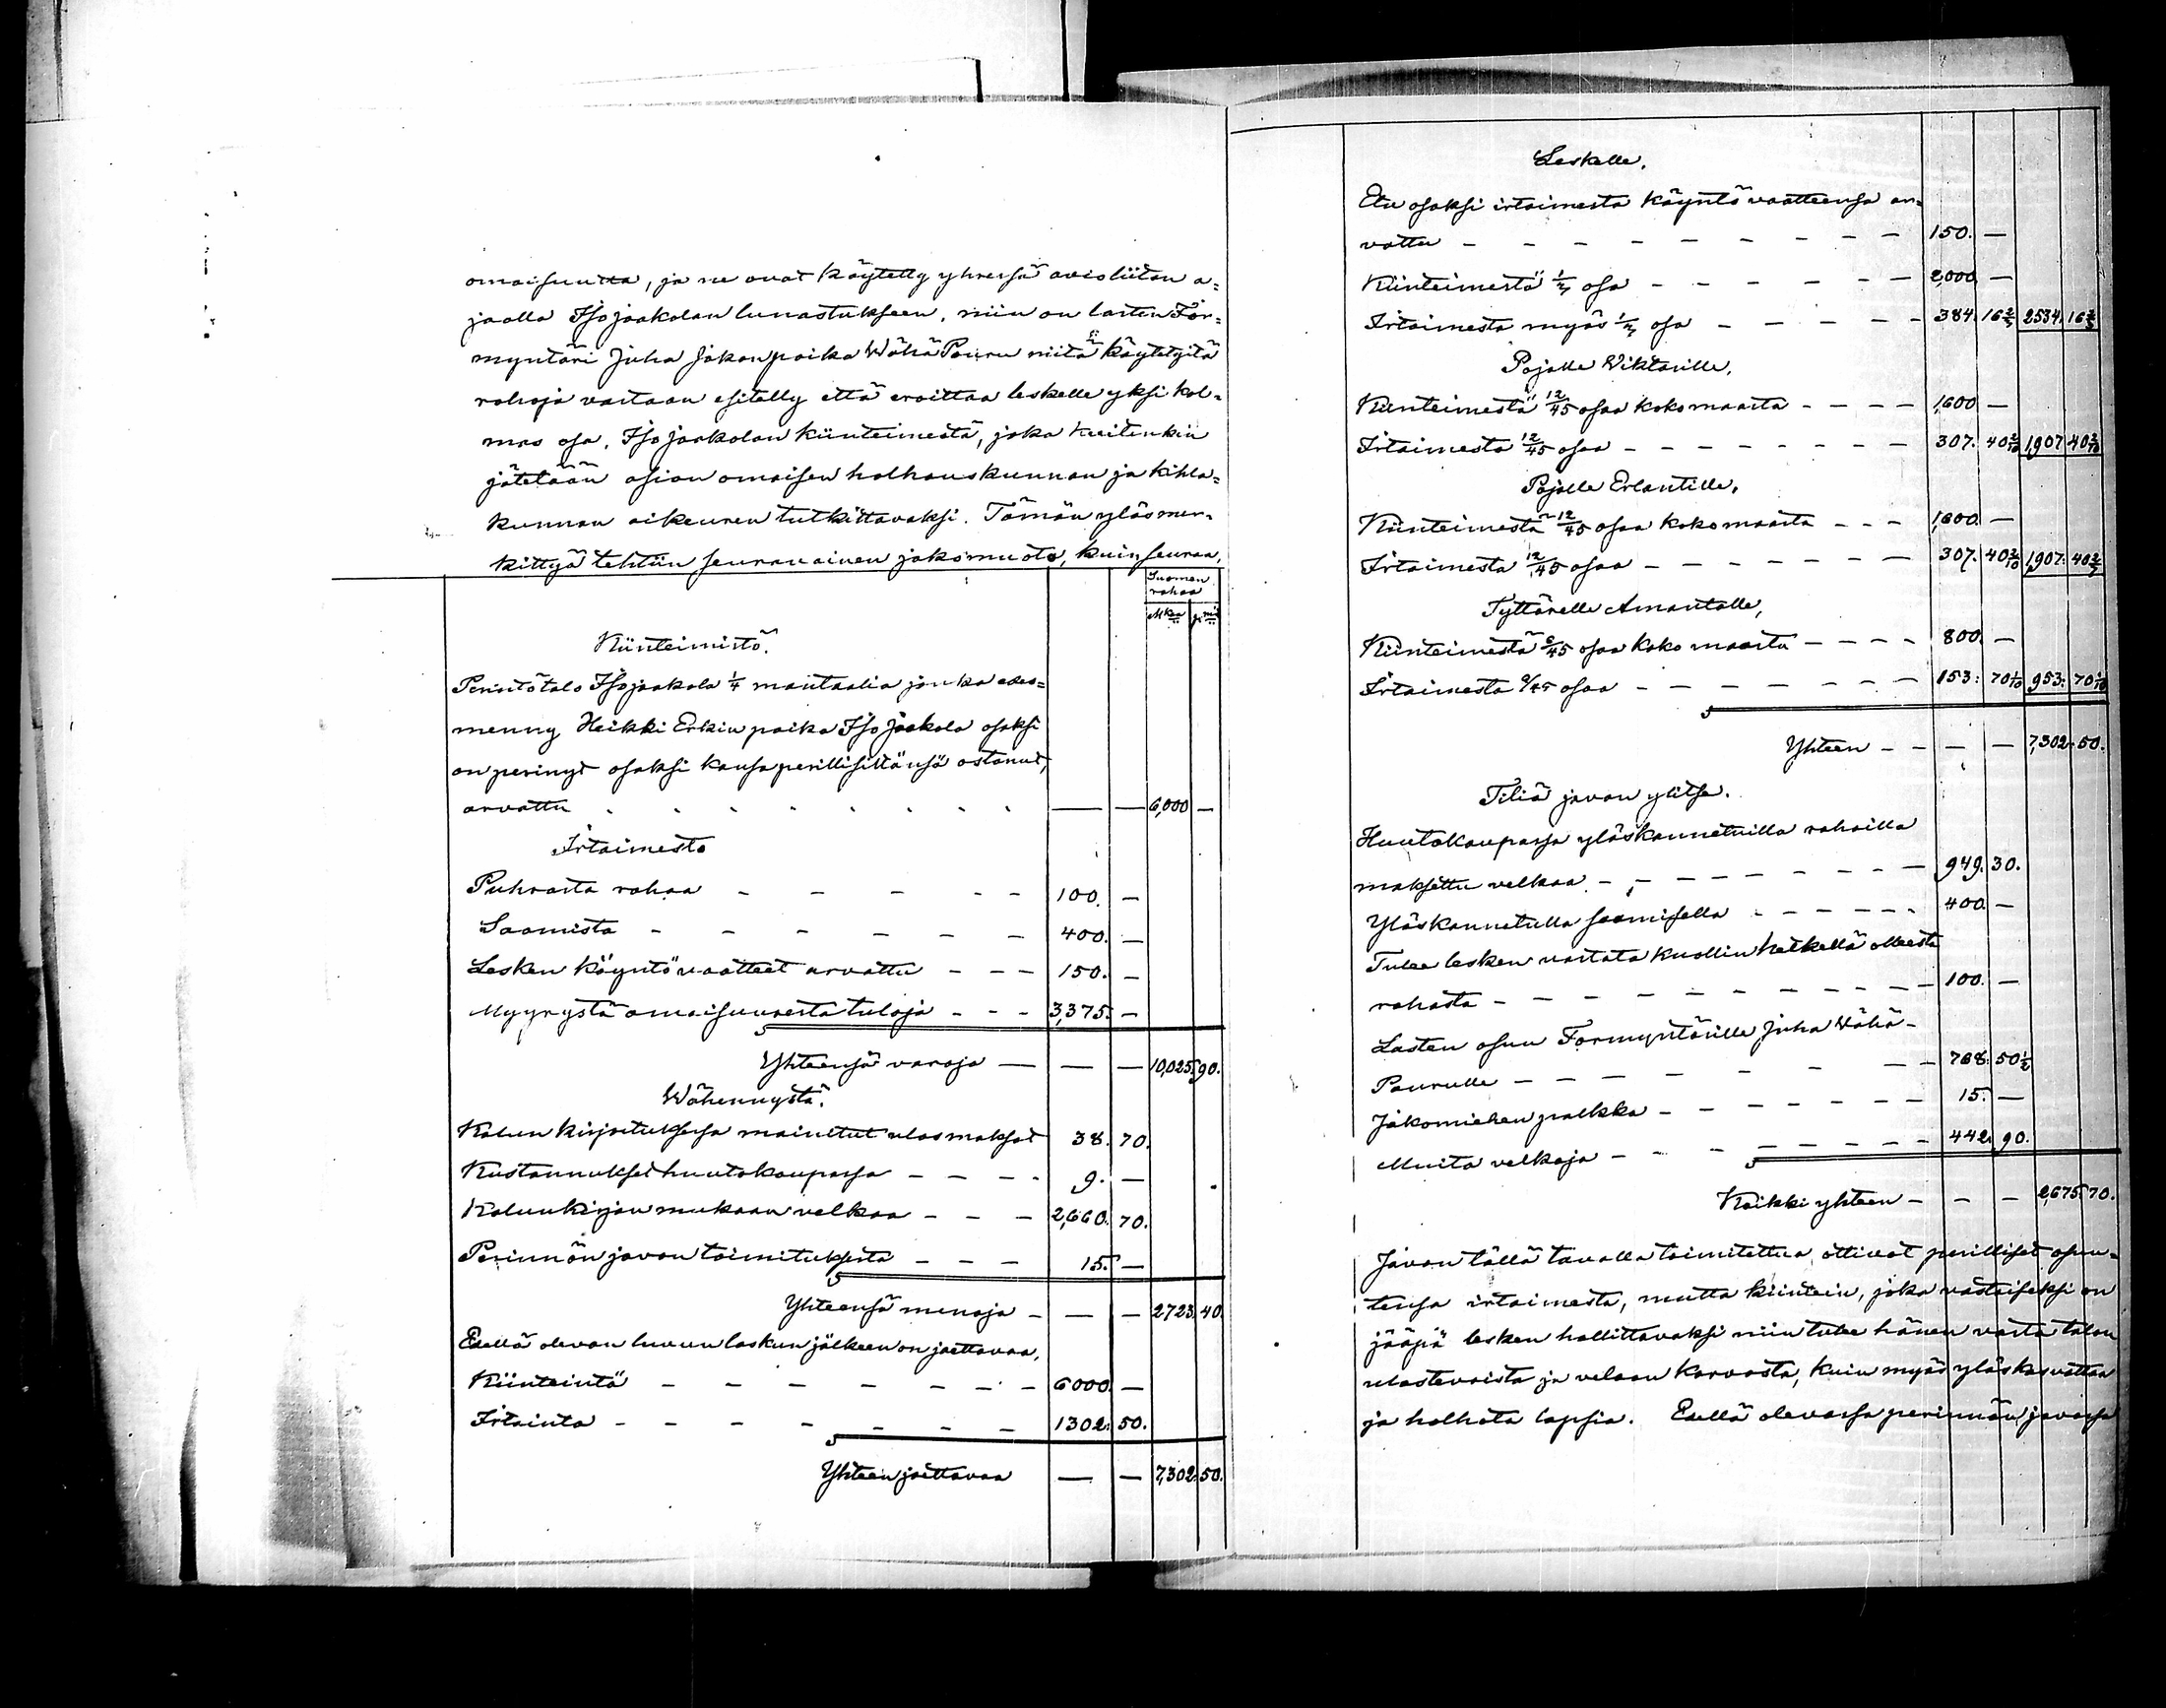 omaisuutta, ja ne ovat käytetty yhressä avioliiton a=
jaalla Isojaakolan lunastukseen, niin on lasten För=
myntäri Juha Jakonpoika Wähä Pouru niitä käytetyitä
rahoja vastaan esitelly että eroittaa leskelle yksi kol-
mas osa, Isojaakolan kiinteimestä, joka kuitenkin
jätetään asian omaisen holhouskunnan ja kihla=
kunnan oikeuren tutkittavaksi. Tämän yläsmer-
kittyä tehtiin seuraavainen jakomuoto, kuin seuraa,
Suomen
rahaa
Mkaa pniä
Kiinteimistö.
Perintötalo Isojaakola 1/4 mantaalia jonka edes=
menny Heikki Erkin poika Isojaakola osaksi
on perinyt osaksi kansaperillisiltänsä ostanut,
arvattu — — 6,000 —
Irtaimesto
Puhrasta rahaa - - - - - 100. —
Saamista - - - - - - 400. —
Lesken käyntövaatteet arvattu - - - 150. —
Myyrystä omaisuuresta tuloja - - - 3,375. —
Yhteensä varoja — — — 10,025. 90.
Wähennystä.
Kalun kirjoituksessa mainitut ulosmaksot 38. 70.
Kustannukset huutokaupassa - - - - 9. —
Kalunkirjan mukaan velkaa - - - 2,660. 70.
Perinnön javon toimituksesta - - - 15. —
Yhteensä menoja - — — 2723. 40.
Edellä olevan luvun laskun jälkeen on jaettavaa,
Kiinteintä - - - - - - - 6000. —
Irtainta - - - - - - - 1302. 50.
Yhteen jaettavaa — — 7,302. 50.
Leskelle.
Etu osaksi irtaimesta käyntövaatteensa ar=
vattu - - - - - - - - - 150. —
Kiinteimestä 1/3 osa - - - - - - 2,000. —
Irtaimesta myös 1/3 osa - - - - - 384. 16 2/3 2534. 16 2/3
Pojalle Wiktorille.
Kiinteimestä 12/45 osaa koko maasta - - - - 1,600 —
Irtaimesta 12/45 osaa - - - - - - - 307. 40 2/10 1,907 40 2/10
Pojalle Erlantille.
Kiinteimestä 12/45 osaa koko maasta - - - 1,600. —
Irtaimesta 12/45 osaa - - - - - - 307. 40 2/10 1,907. 40 2/
Tyttärelle Amantalle,
Kiinteimestä 6/45 osaa koko maasta - - - - 800. —
Irtaimesta 6/45 osaa - - - - - - - 153. 70 1/10 953. 70 1/10
Yhteen - - — — 7,302. 50.
Tiliä javon ylitse.
Huutokaupassa yläskannetuilla rahoilla
maksettu velkaa - - - - - - - - 949. 30.
Yläskannetulla saamisella - - - - - - 400. —
Tulee lesken vastata kuollin hetkellä olleesta
rahasta - - - - - - - - - - 100. —
Lasten osuu Formyntärille Juha Wähä-
Pourulle - - - - - - - - 768. 50 1/2
Jakomiehen palkka - - - - - - - 15. —
Muita velkoja - - - - - - - - 442. 90.
Kaikki yhteen - - — 2,675. 70.
Javon tällä tavalla toimitettua, ottivat perilliset osuu-
tensa irtaimesta, mutta kiintein, joka vastaiseksi on
jääpä lesken hallittavaksi niin tulee hänen vasta talon
ulosteoista ja velaan korvosta, kuin myös yläskasvattaa
ja holhota lapsia. Edellä olevassa perinnön javossa